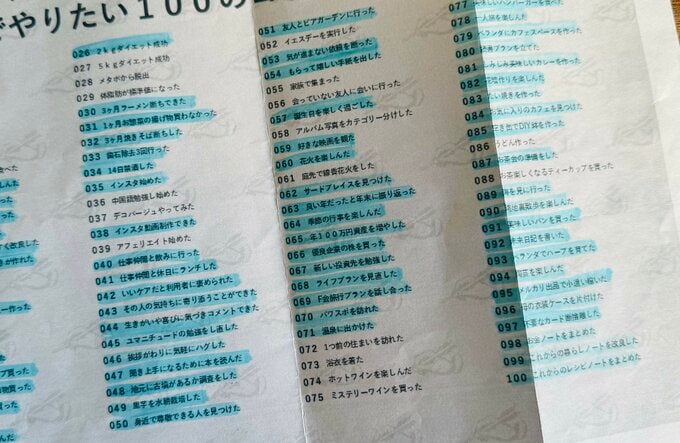 でやりたい100の
026 2kgダイエット成功
027 5kgダイエット成功
028 メタボから脱出
029 体脂肪が標準値になった
030 3ヶ月ラーメン断ちできた
031 1ヶ月お惣菜の揚げ物買わなかった
032 3ヶ月焼きそば断ちした
033 歯石除去3回行った
034 14日禁酒した
035 インスタ始めた
036 中国語勉強し始めた
037 デコパージュやってみた
038 インスタ動画制作できた
039 アフェリエイト始めた
040 仕事仲間と飲みに行った
041 仕事仲間と休日にランチした
042 いいケアだと利用者に褒められた
043 その人の気持ちに寄り添うことができた
044 生きがいや喜びに気づきコメントできた
045 ユマニチュードの勉強をし直した
046 挨拶がわりに気軽にハグした
047 聞き上手になるために本を読んだ
048 地元に古墳があるか調査をした
049 里芋を水耕栽培した
050 身近で尊敬できる人を見つけた
051 友人とビアガーデンに行った
052 イエスデーを実行した
053 気が進まない依頼を断った
054 もらって嬉しい手紙を出した
055 家族で集まった
056 会っていない友人に会いに行った
057 誕生日を楽しく過ごした
058 アルバム写真をカテゴリー分けした
059 好きな映画を観た
060 花火を楽しんだ
061 庭先で線香花火をした
062 サードプレイスを見つけた
063 良い年だったと年末に振り返った
064 季節の行事を楽しんだ
065 年100万円資産を増やした
066 優良企業の株を買った
067 新しい投資先を勉強した
068 ライフプランを見直した
069 F会旅行プランを話し合った
070 パワスポを訪れた
071 温泉に出かけた
072 1つ前の住まいを訪れた
073 浴衣を着た
074 ホットワインを楽しんだ
075 ミステリーワインを買った
077 美味しいハンバーガーを食べた
078 一人旅を楽しんだ
079 ベランダにカフェスペースを作った
080 プランを立てた
081 しみ美味しいカレーを作った
082 作りを楽しんだ
083 たい焼きを作った
084 お気に入りのカフェを見つけた
085 空き缶でDIY鉢を作った
086 うどん作った
087 お茶会の準備をした
088 お茶楽しくなるティーカップを買った
089 を見に行った
090 散歩を楽しんだ
091 美味しいパンを買った
092 未来日記を書いた
093 ベランダでハーブを育てた
094 を楽しんだ
095 メルカリ出品で小遣い稼いだ
096 の衣装ケースを片付けた
097 要なカード断捨離した
098 ノートをまとめた
099 これからの暮らしノートを改良した
100 これからのレシピノートをまとめた